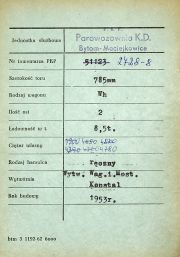 P.K.P.
Jednostka służbowa Parowozownia K.D.
Bytom-Maciejkowice
Nr inwentarza PKP 51123 2728-8
Szerokość toru 785mm
Rodzaj wagonu Wh
Ilość osi 2
Ładowność w t 8,5t.
Ciężar własny
Rodzaj hamulca ręczny
Wytwórnia Wytw. Wag. i Most.
Konstal
Rok budowy 1953r.